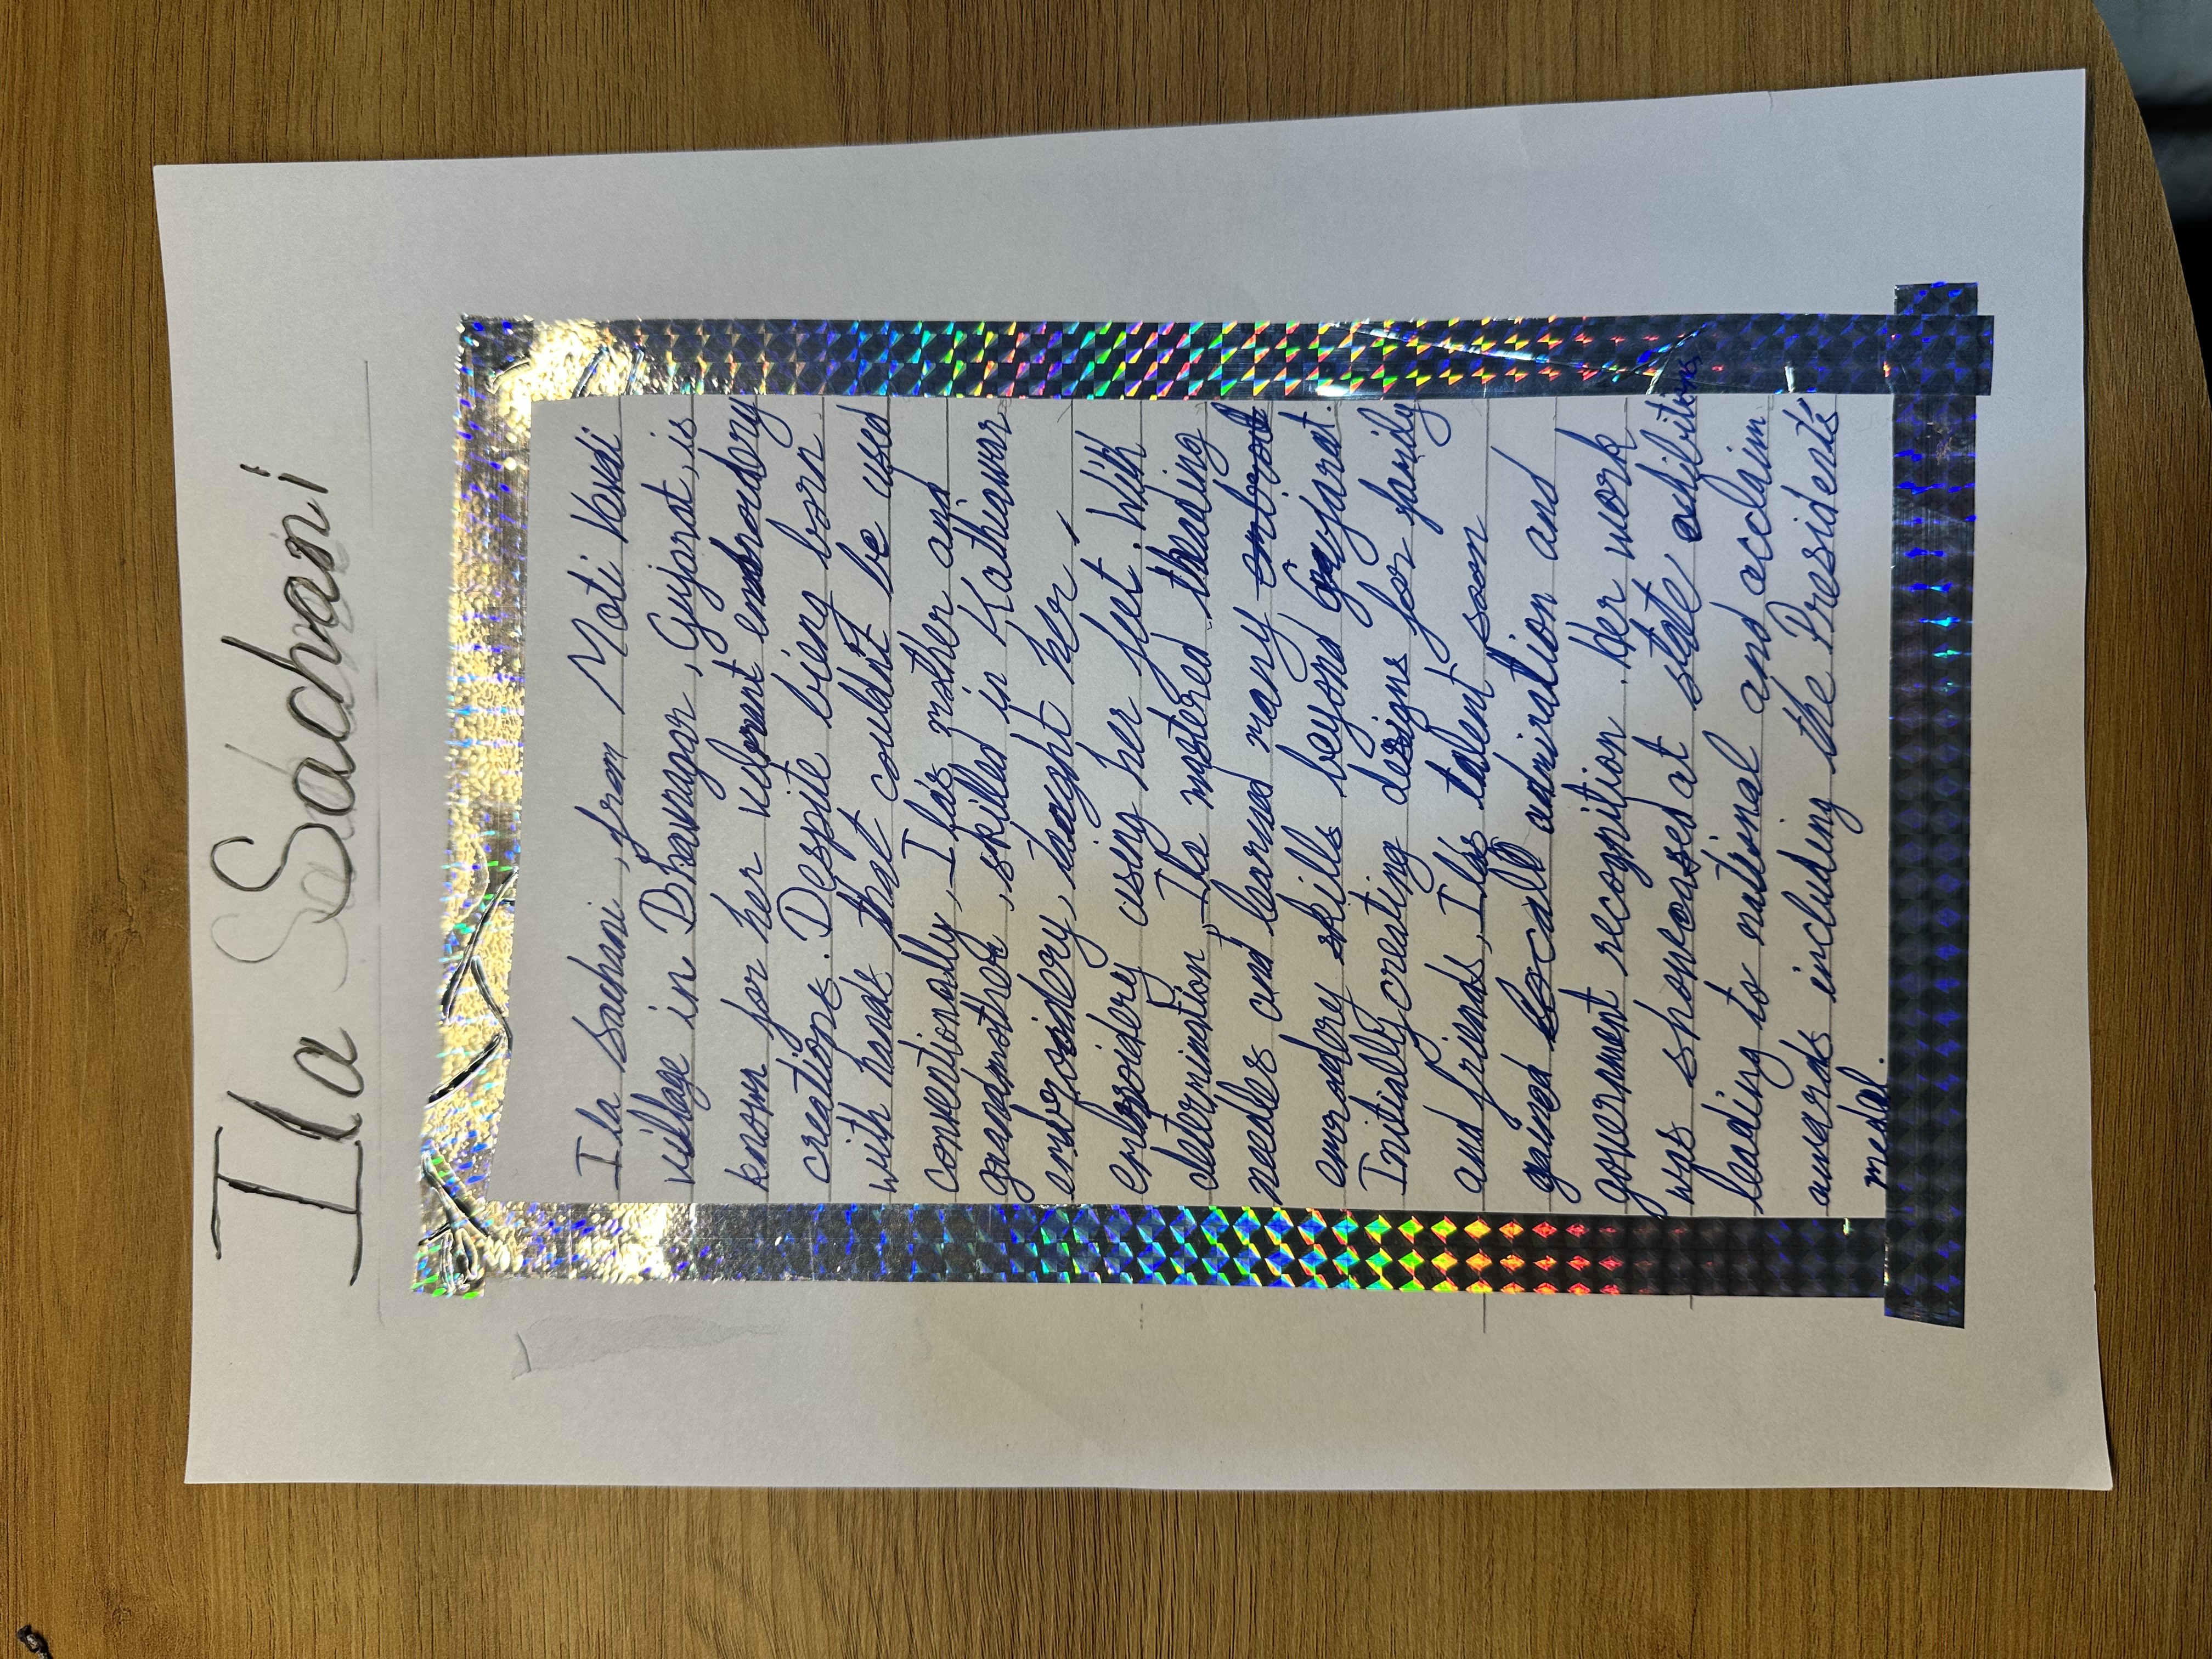 Ila Sachani
Ila Sachani, from Moti Vavdi
village in Bhavnagar, Gujarat, is
known for her vibrant embroidery
creations. Despite bieng born
with hands that couldn't be used
conventionally, Ila's mother and
grandmother, skilled in Kathiawar
embroidery, taught her,
embroidery using her feet. With
determination, Ila mastered theading
needles and learned many embroid
emrodery skills beyond Gujarat.
Initially creating designs for family
and friends, Ila's talent soon
gained local admiration and
government recognition. Her work
was showcased at state exhibitions
leading to national and acclaim
awards including the President's
medal.